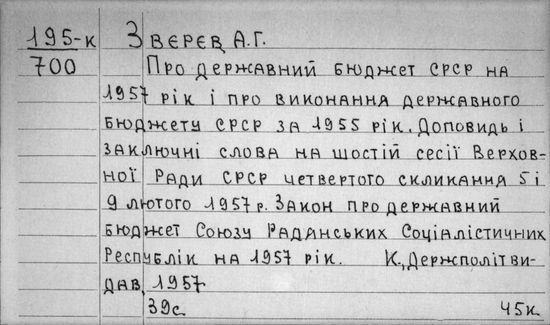 195-к Зверев А.Г.
700 Про державний бюджет СРСР на
1957 рік і про виконання державного
бюджету СРСР за 1955 рік. Доповидь і
заключні слова на шостій сесії Верхов-
ної Ради СРСР четвертого скликання 5 і
9 лютого 1957 р. Закон про державний
бюджет Союзу Радянських Соціалістичних
Республік на 1957 рік. К., Держполітви-
дав, 1957
39с. 45к.